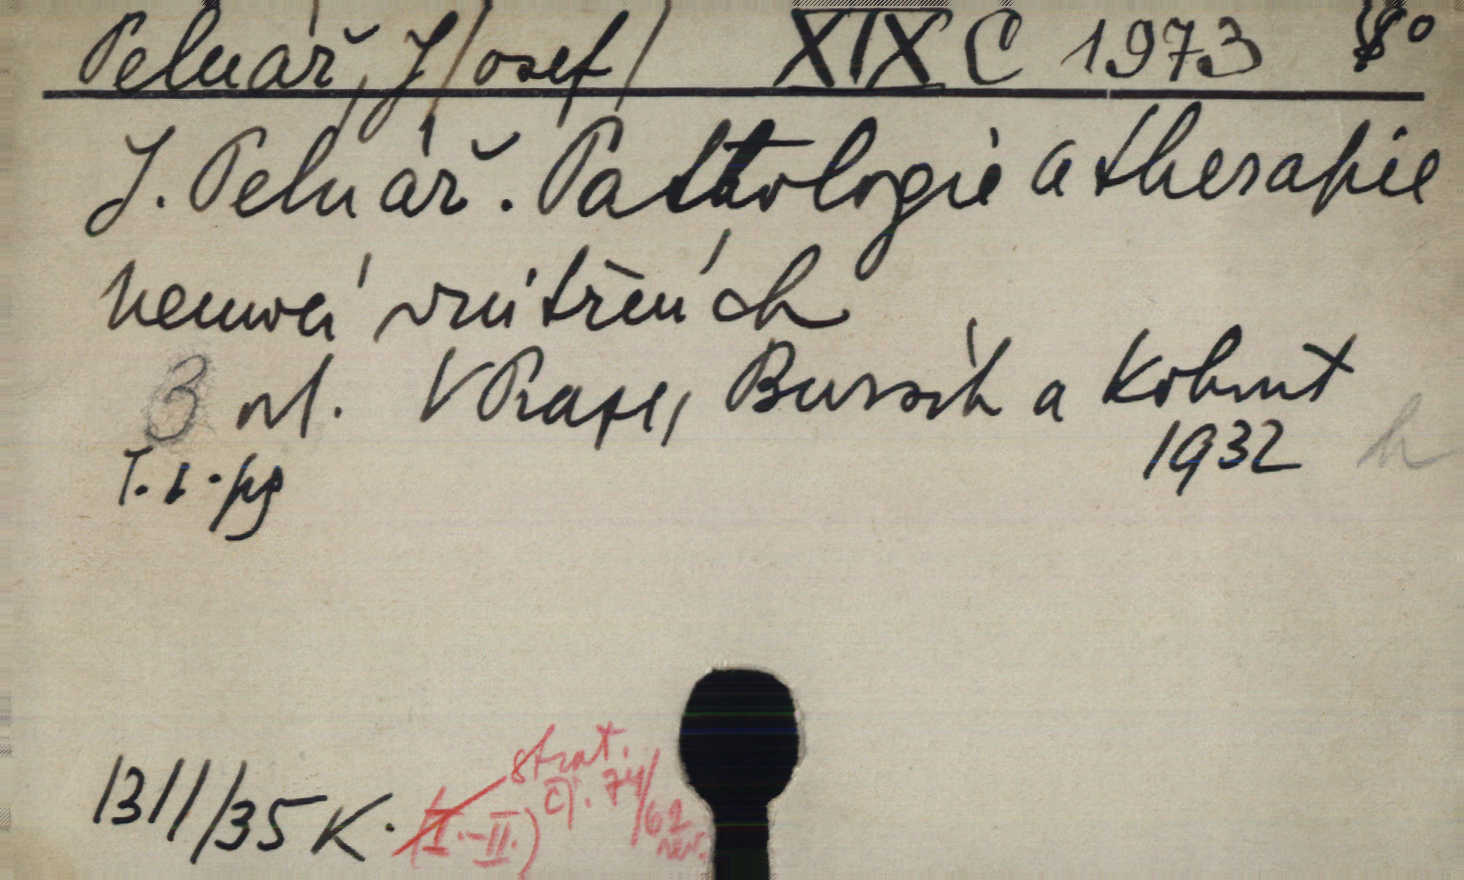 Pelnář, J/osef/ XIX C 1973 8°
J. Pelnář. Pathologie a therapie
nemocí vnitřních
3 vl. V Praze, Bursík a Kohout
1932
T. 1. pg
1311/35 K. (I.-II.) strat.
čj. 74/62
rev.